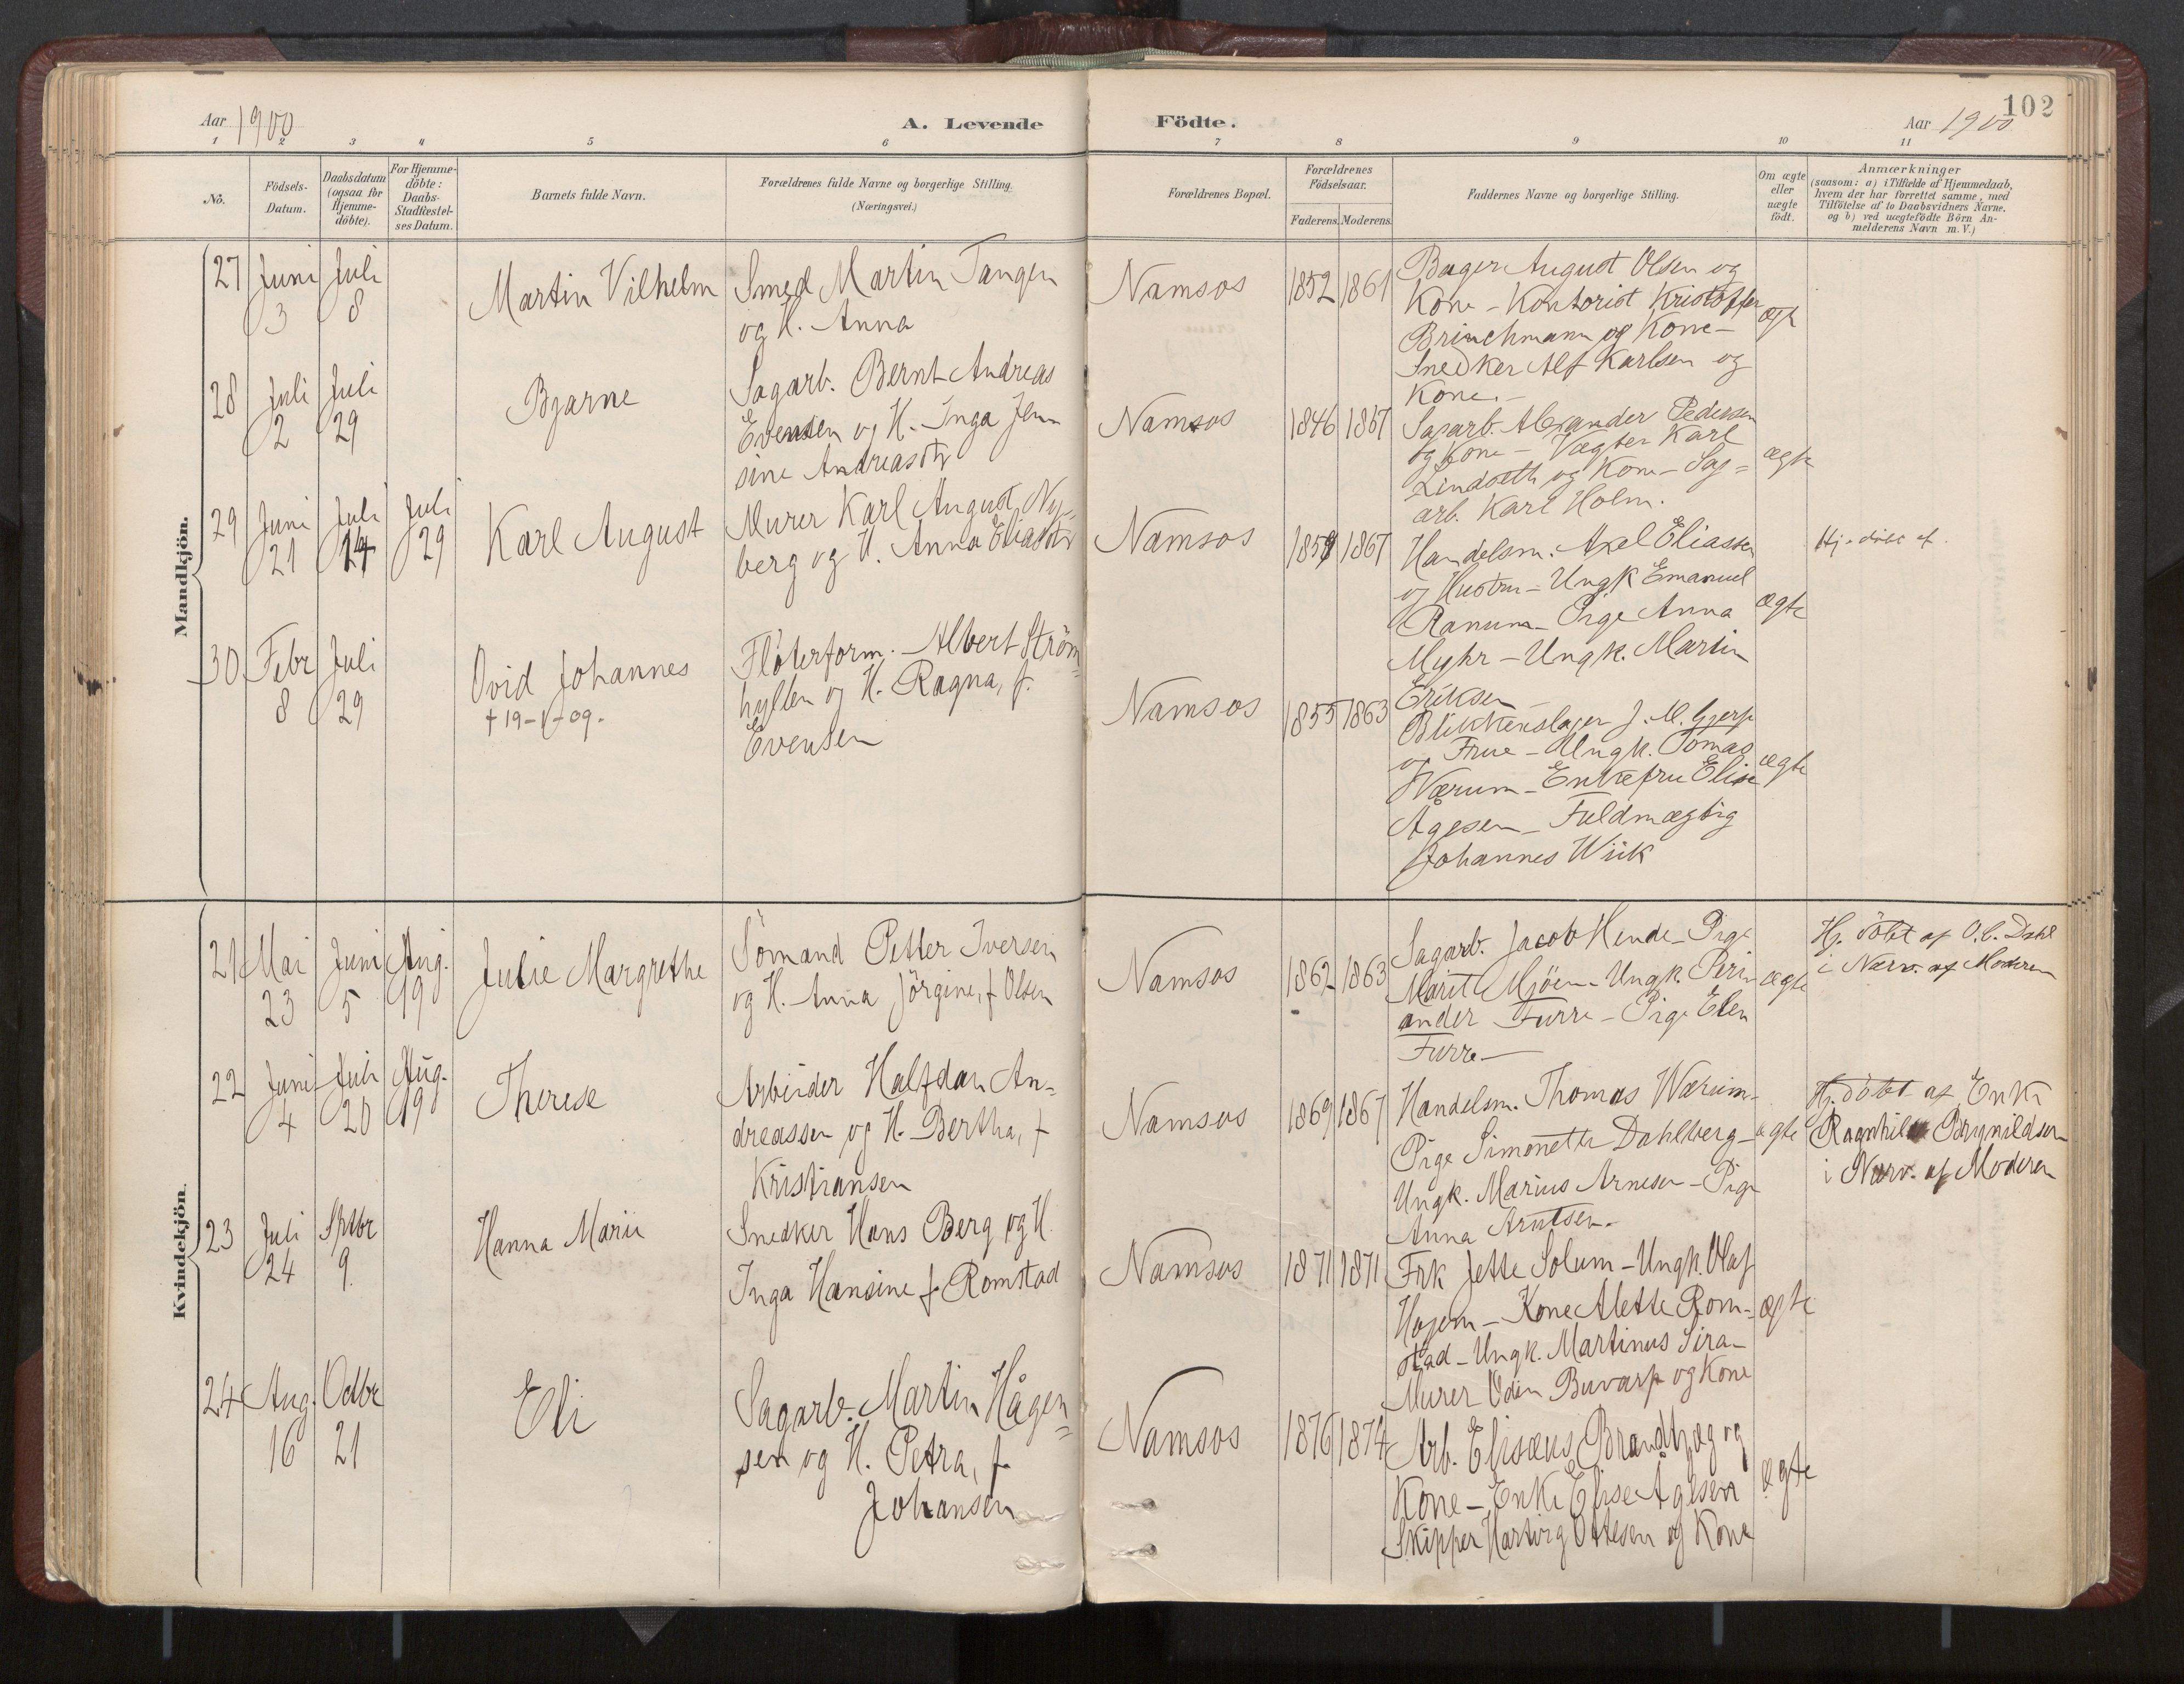 102
Aar 1900
A. Levende
Födte.
Aar 1900
1 2 3 4 5 6 7 8 9 10 11
No.
Födsels-
Datum.
Daabsdatum
(ogsaa for
Hjemme-
döbte).
For Hjemme-
döbte:
Daabs-
Stadfæstel-
ses Datum.
Barnets fulde Navn.
Forældrenes fulde Navne og borgerlige Stilling.
(Næringsvei.)
Forældrenes Bopæl.
Forældrenes
Födselsaar.
Faderens. Moderens.
Faddernes Navne og borgerlige Stilling.
Om ægte
eller
uægte
födt.
Anmærkninger
(saasom: a) i Tilfælde af Hjemmedaab,
hvem der har forrettet samme, med
Tilföielse af to Daabsvidners Navne,
og b) ved uægtefödte Börn An-
melderens Navn m. V.)
Mandkjön.
27
Juni
3
Juli
8
Martin Vilhelm
Smed Martin Tangen
og H. Anna
Namsos
1852 1861
Bager August Olsen og
Kone - Kontorist Kristoffer
Brinchmann og Kone -
Snedker Alf Karlsen og
Kone. -
ægte
28
Juli
2
Juli
29
Bjarne
Sagarb. Bernt Andreas
Evensen og H. Inga Jen
sine Andreasdtr
Namsos
1846 1867
Sagarb. Alexander Pedersen
og Kone - Vægter Karl
Lindseth og Kone - Sag=
arb. Karl Holm.
ægte
29
Juni
21
Juli
24
Juli
29
Karl August
Murer Karl August Ny-
berg og H. Anna Eliasdtr
Namsos
1859 1867
Handelsm. Axel Eliassen
og Hustru - Ungk Emanuel
Ranum - Pige Anna
Myhr - Ungk. Martin
Eriksen
ægte
Hj. döbt af.
30
Febr
8
Juli
29
Ovid Johannes
+ 19-1-09.
Fløterform. Albert Ström=
hyllen og H. Ragna, f.
Evensen
Namsos
1855 1863
Blikkenslager J. M. Gjerp
og Frue - Ungk. Tomas
Wærum - Enkefru Elise
Ågesen - Fuldmægtig
Johannes Wiik
ægte
Kvindekjön.
21
Mai
23
Juni
5
Aug.
19
Julie Margrethe
Sömand Petter Iversen
og H. Anna Jörgine, f Olsen
Namsos
1862 1863
Sagarb. Jacob Hende - Pige
Marit Mjöen - Ungk. Peri
ander Furre - Pige Elen
Furre -
ægte
Hj. döbt af O. C. Dahl
i Nærv. af Moderen
22
Juni
4
Juli
20
Aug.
19
Therese
Arbeider Halfdan An=
dreassen og H. Bertha, f
Kristiansen
Namsos
1869 1867
Handelsm. Thomas Wærum -
Pige Simonette Dahlberg -
Ungk. Marius Arnesen - Pige
Anna Arntsen.
ægte
Hj. döbt af Enke
Ragnhild Brynildsen
i Nærv. af Moderen
23
Juli
24
Sptbr
9
Hanna Marie
Snedker Hans Berg og H.
Inga Hansine f. Romstad
Namsos
1871 1871
Frk Jette Solum - Ungk. Olaf
Hojem - Kone Alette Rom-
stad - Ungk. Martinus Sira -
Murer Odin Buvarp og Kone
ægte
24
Aug.
16
Octbr
21
Eli
Sagarb. Martin Hågen=
sen og H. Petra, f.
Johansen
Namsos
1876 1874
Arb. Elisæus Brandtzæg og
Kone - Enke Elise Ågesen
Skipper Hartvig Ottesen og Kone
ægte